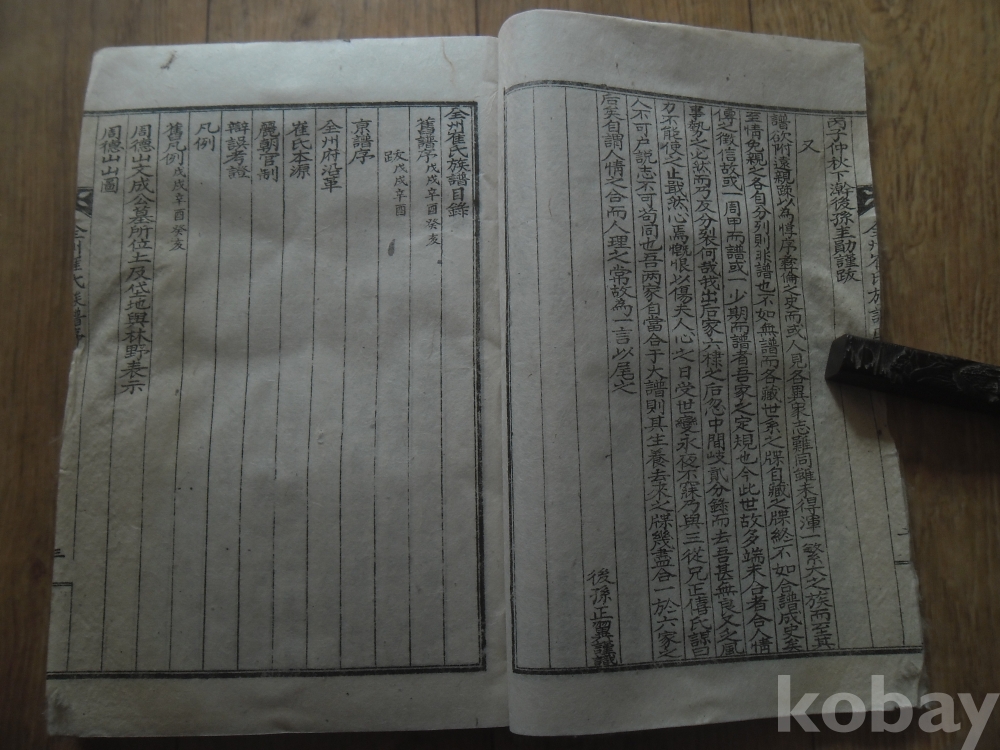 丙子仲秋下澣後孫圭勛謹跋
又
譜欲附遠親踈以為惇序彛倫之史而或人見各異宋志難同雖未得渾一繁大之族而至其
至情免親之各自分列則非譜也不如無譜而各藏世系之牒自藏之牒終不如合譜成史矣
傳之徵信故或一周甲而譜或一少期而譜者吾家之定規也今此世故多端未合者合人情
事勢之必然而乃反分裂何哉我出后家六棣之后忽中間歧貳分錄而去吾甚無良又之風
力不能使之止戢然心焉慨恨以傷美人心之日受世變永夜不寐乃與三從兄正僖氏謀曰
人不可戶說志不可苟同也吾兩家自當合于大譜則其生養去來之牒幾盡合一於六家之
后矣自謂人情之合而人理之常故為一言以尾之
後孫正翼謹識
全州崔氏族譜目錄
舊譜序 戊戌 辛酉 癸亥
跋 戊戌 辛酉
京譜序
全州府沿革
崔氏本源
麗朝官制
辯誤考證
凡例
舊凡例 戊戌 辛酉 癸亥
周德山文成公墓所位土及垈地與林野表示
周德山山圖
全州崔氏族譜
三
kobay